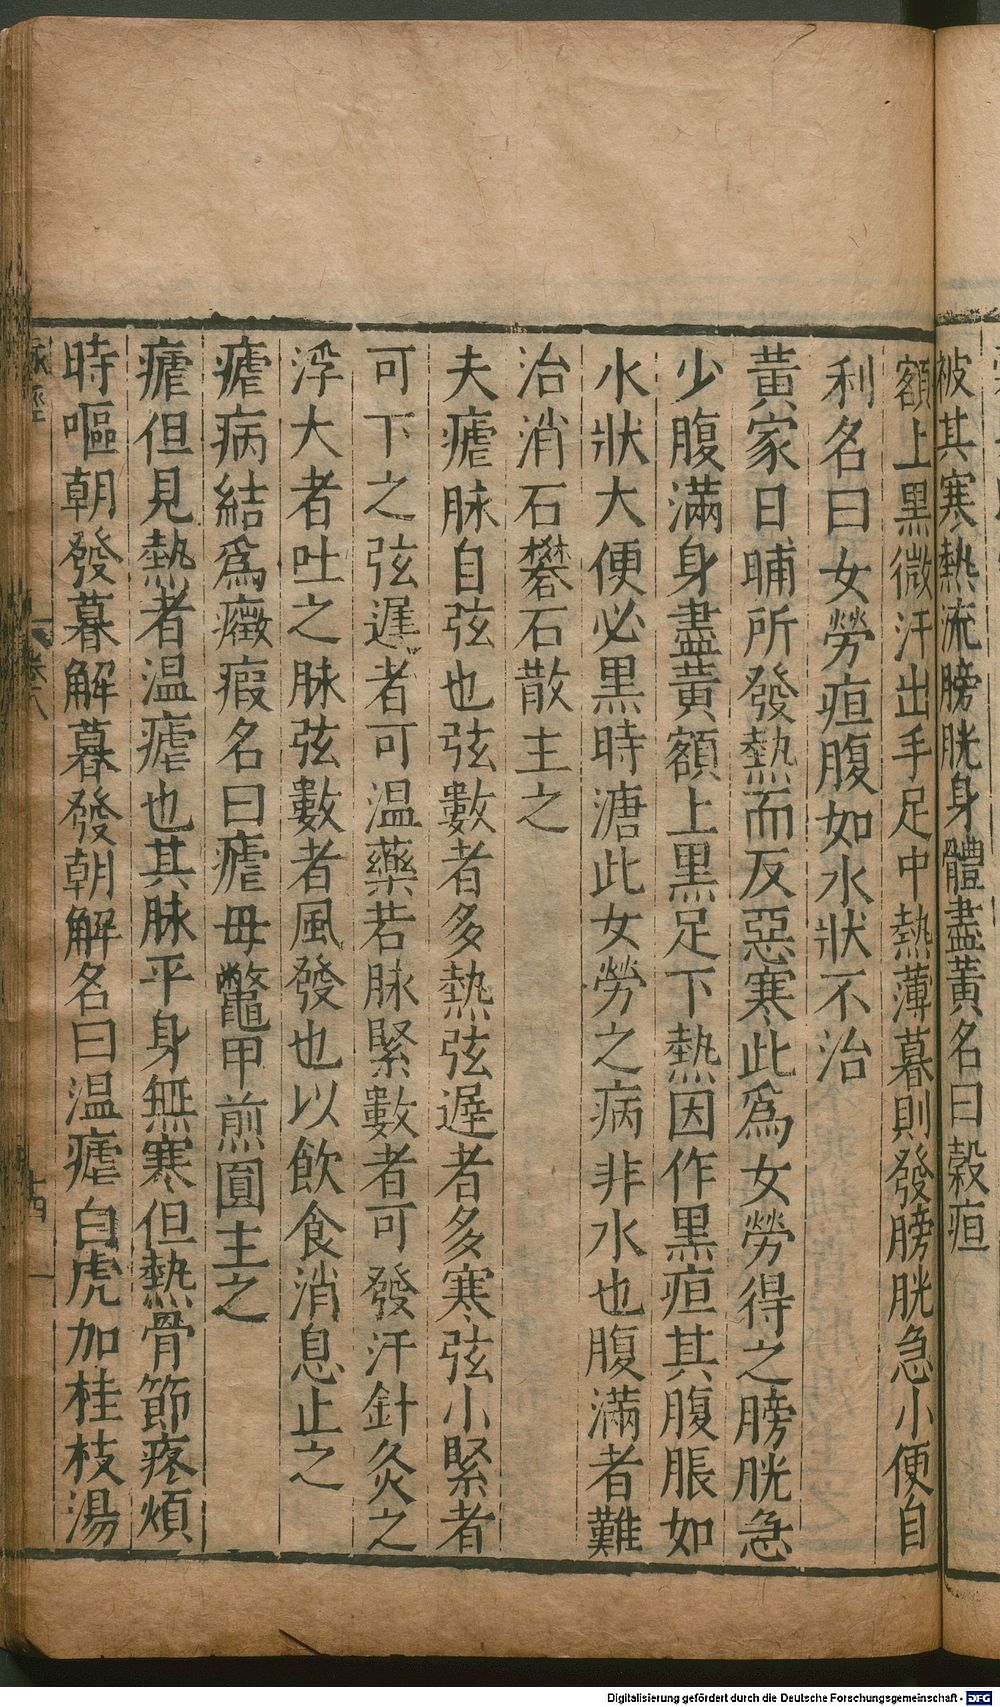 被其寒熱流膀胱身體盡黃名曰穀疸
額上黑微汗出手足中熱薄暮則發膀胱急小便自
利名曰女勞疸腹如水狀不治
黃家日晡所發熱而反惡寒此爲女勞得之膀胱急
少腹滿身盡黃額上黑足下熱因作黑疸其腹脹如
水狀大便必黑時溏此女勞之病非水也腹滿者難
治消石礬石散主之
夫瘧脉自弦也弦數者多熱弦遲者多寒弦小緊者
可下之弦遲者可温藥若脉緊數者可發汗針灸之
浮大者吐之脉弦數者風發也以飲食消息止之
瘧病結爲癥瘕名曰瘧母鼈甲煎圓主之
瘧但見熱者温瘧也其脉平身無寒但熱骨節疼煩
時嘔朝發暮解暮發朝解名曰温瘧白虎加桂枝湯
脉經
卷八
十四
Digitalisierung gefördert durch die Deutsche Forschungsgemeinschaft - DFG